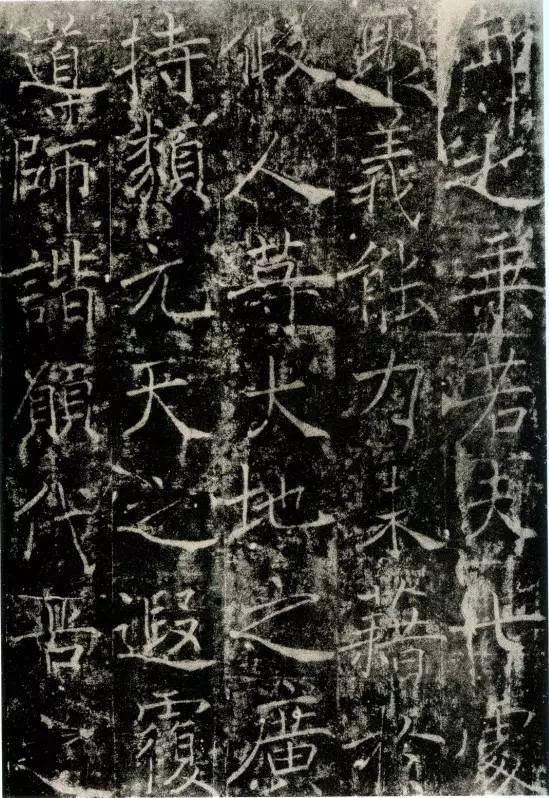 之乘若夫七處
義能力未藉於
假人尊大地之廣
持類元天之遐覆
導師諧願代之